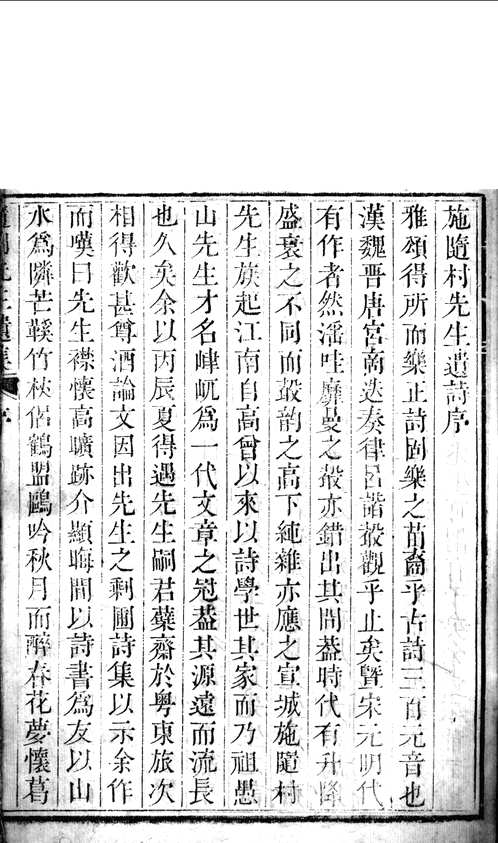 施隨村先生遺詩序
雅頌得所而樂正詩固樂之苗裔乎古詩三百元音也
漢魏晉唐宮商迭奏律呂諧聲觀乎止矣曁宋元明代
有作者然滛哇靡曼之聲亦錯出其間葢時代有升降
盛衰之不同而聲韵之高下純雜亦應之宣城施隨村
先生族起江南自高曾以來以詩學世其家而乃祖愚
山先生才名峍屼爲一代文章之冠葢其源遠而流長
也久矣余以丙辰夏得遇先生嗣君蘗齋於粤東旅次
相得歡甚尊酒論文因出先生之剩圃詩集以示余作
而嘆曰先生襟懷高曠跡介顯晦間以詩書爲友以山
水爲隣芒鞵竹杖侶鶴盟鷗吟秋月而醉春花夢懷葛
隨村先生遺集 序